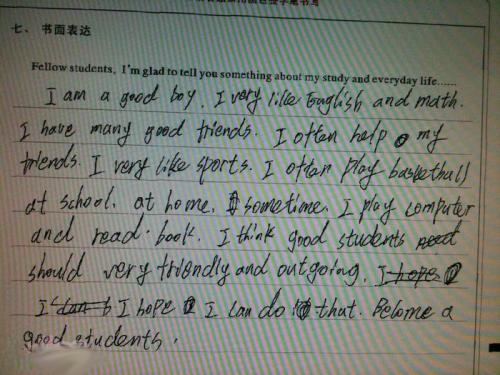 七、 书面表达
Fellow students, I'm glad to tell you something about my study and everyday life......
I am a good boy. I very like English and math.
I have many good friends. I often help my
friends. I very like sports. I often play basketball
at school. at home. sometime. I play computer
and read book. I think good students
should very friendly and outgoing.
I hope I can do that. Become a
good students.